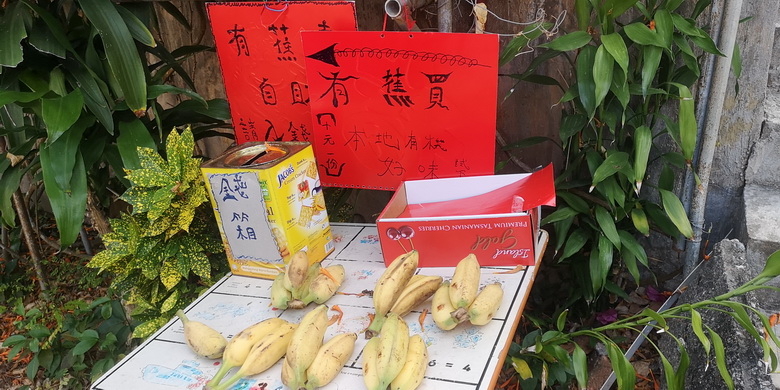 有蕉
自
請入錢
有蕉買
十元一份
本地有機
好味
錢箱
JACOB'S
PREMIUM TASMANIAN CHERRIES
Island Gold
= 4